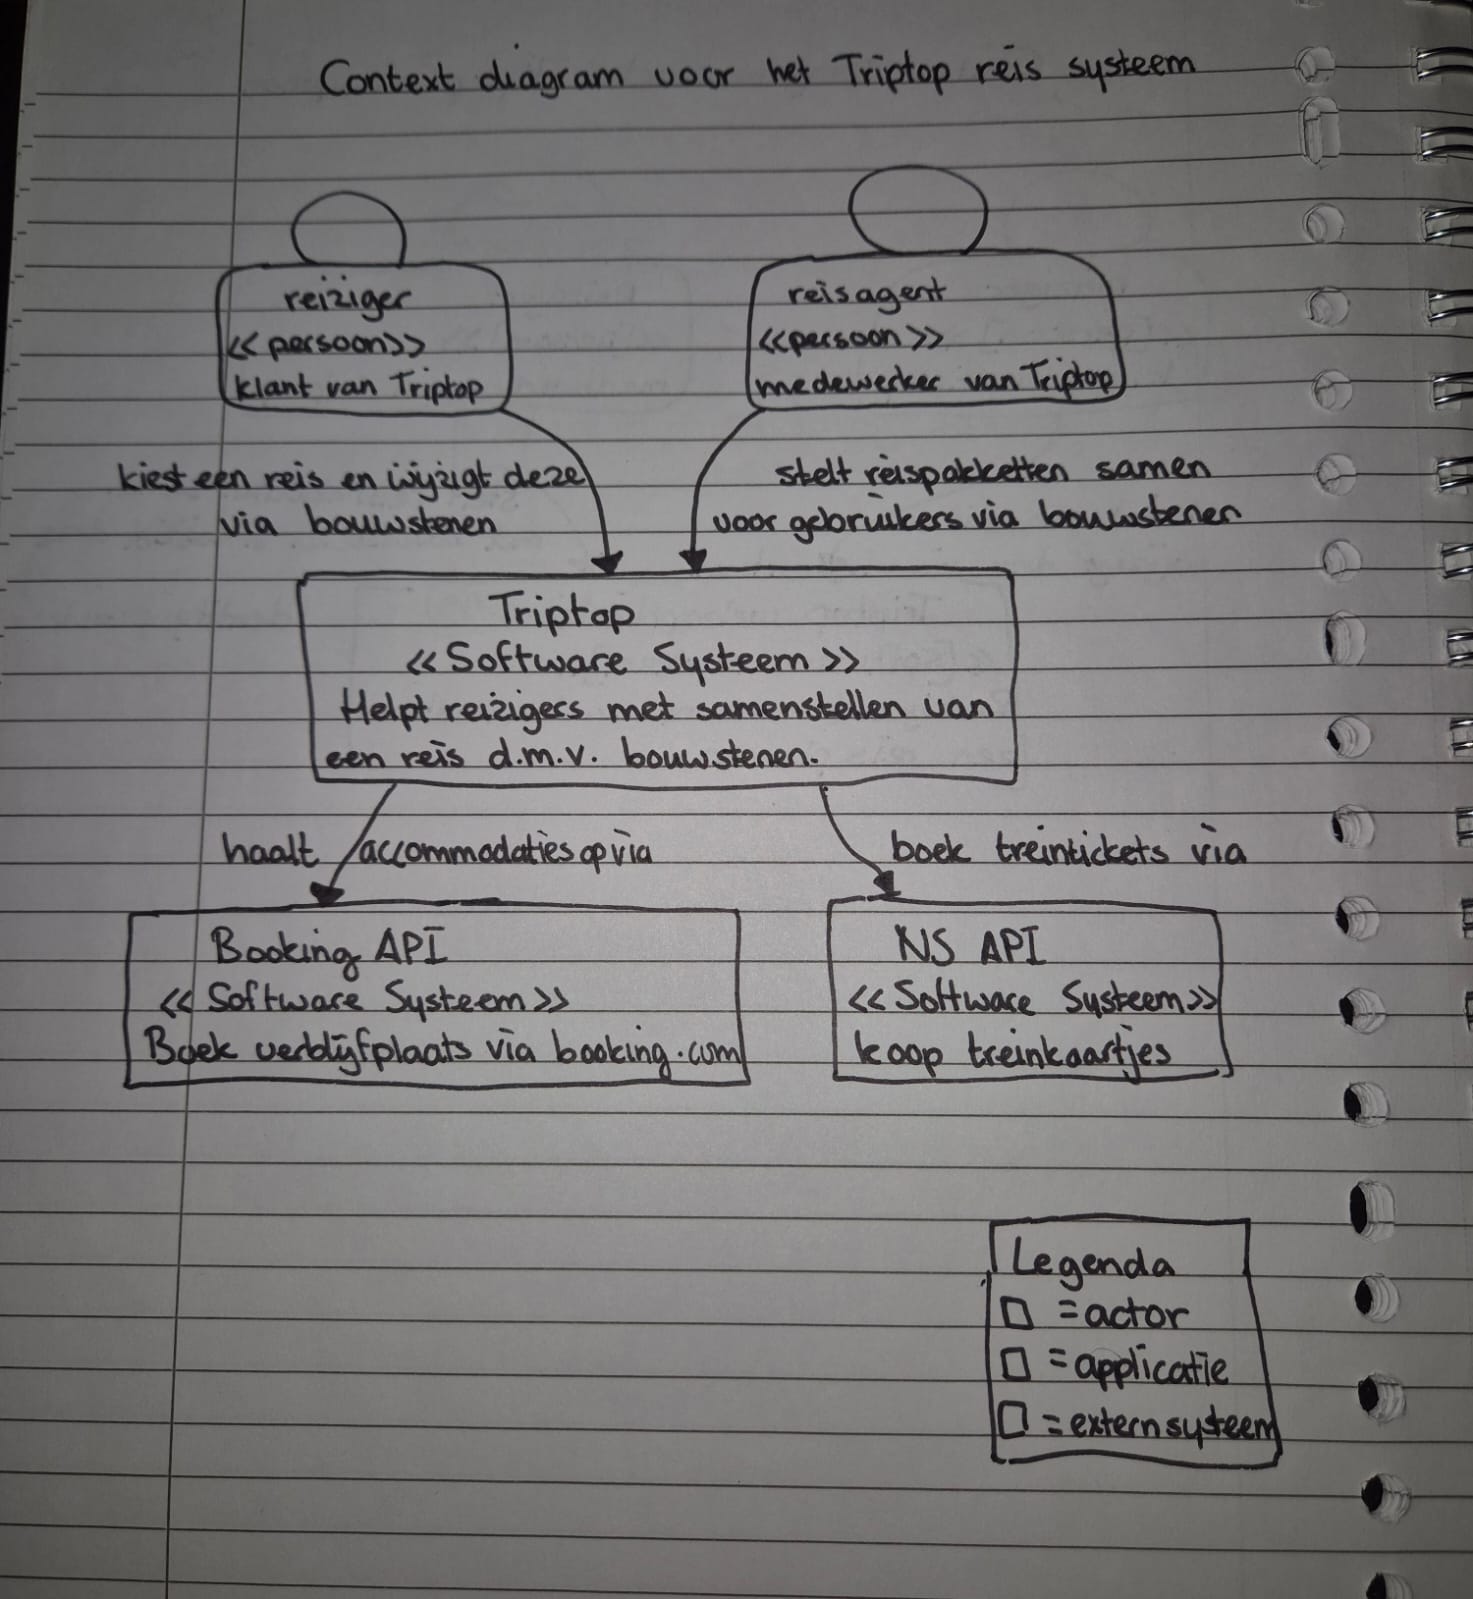 Context diagram voor het Triptop reis systeem
reiziger
<<persoon>>
klant van Triptop
reisagent
<<persoon>>
medewerker van Triptop
kiest een reis en wijzigt deze
via bouwstenen
stelt reispakketten samen
voor gebruikers via bouwstenen
Triptop
<<Software Systeem>>
Helpt reizigers met samenstellen van
een reis d.m.v. bouwstenen.
haalt accommodaties op via
boek treintickets via
Booking API
<<Software Systeem>>
Boek verblijfplaats via booking.com
NS API
<<Software Systeem>>
koop treinkaartjes
Legenda
□ = actor
□ = applicatie
□ = extern systeem